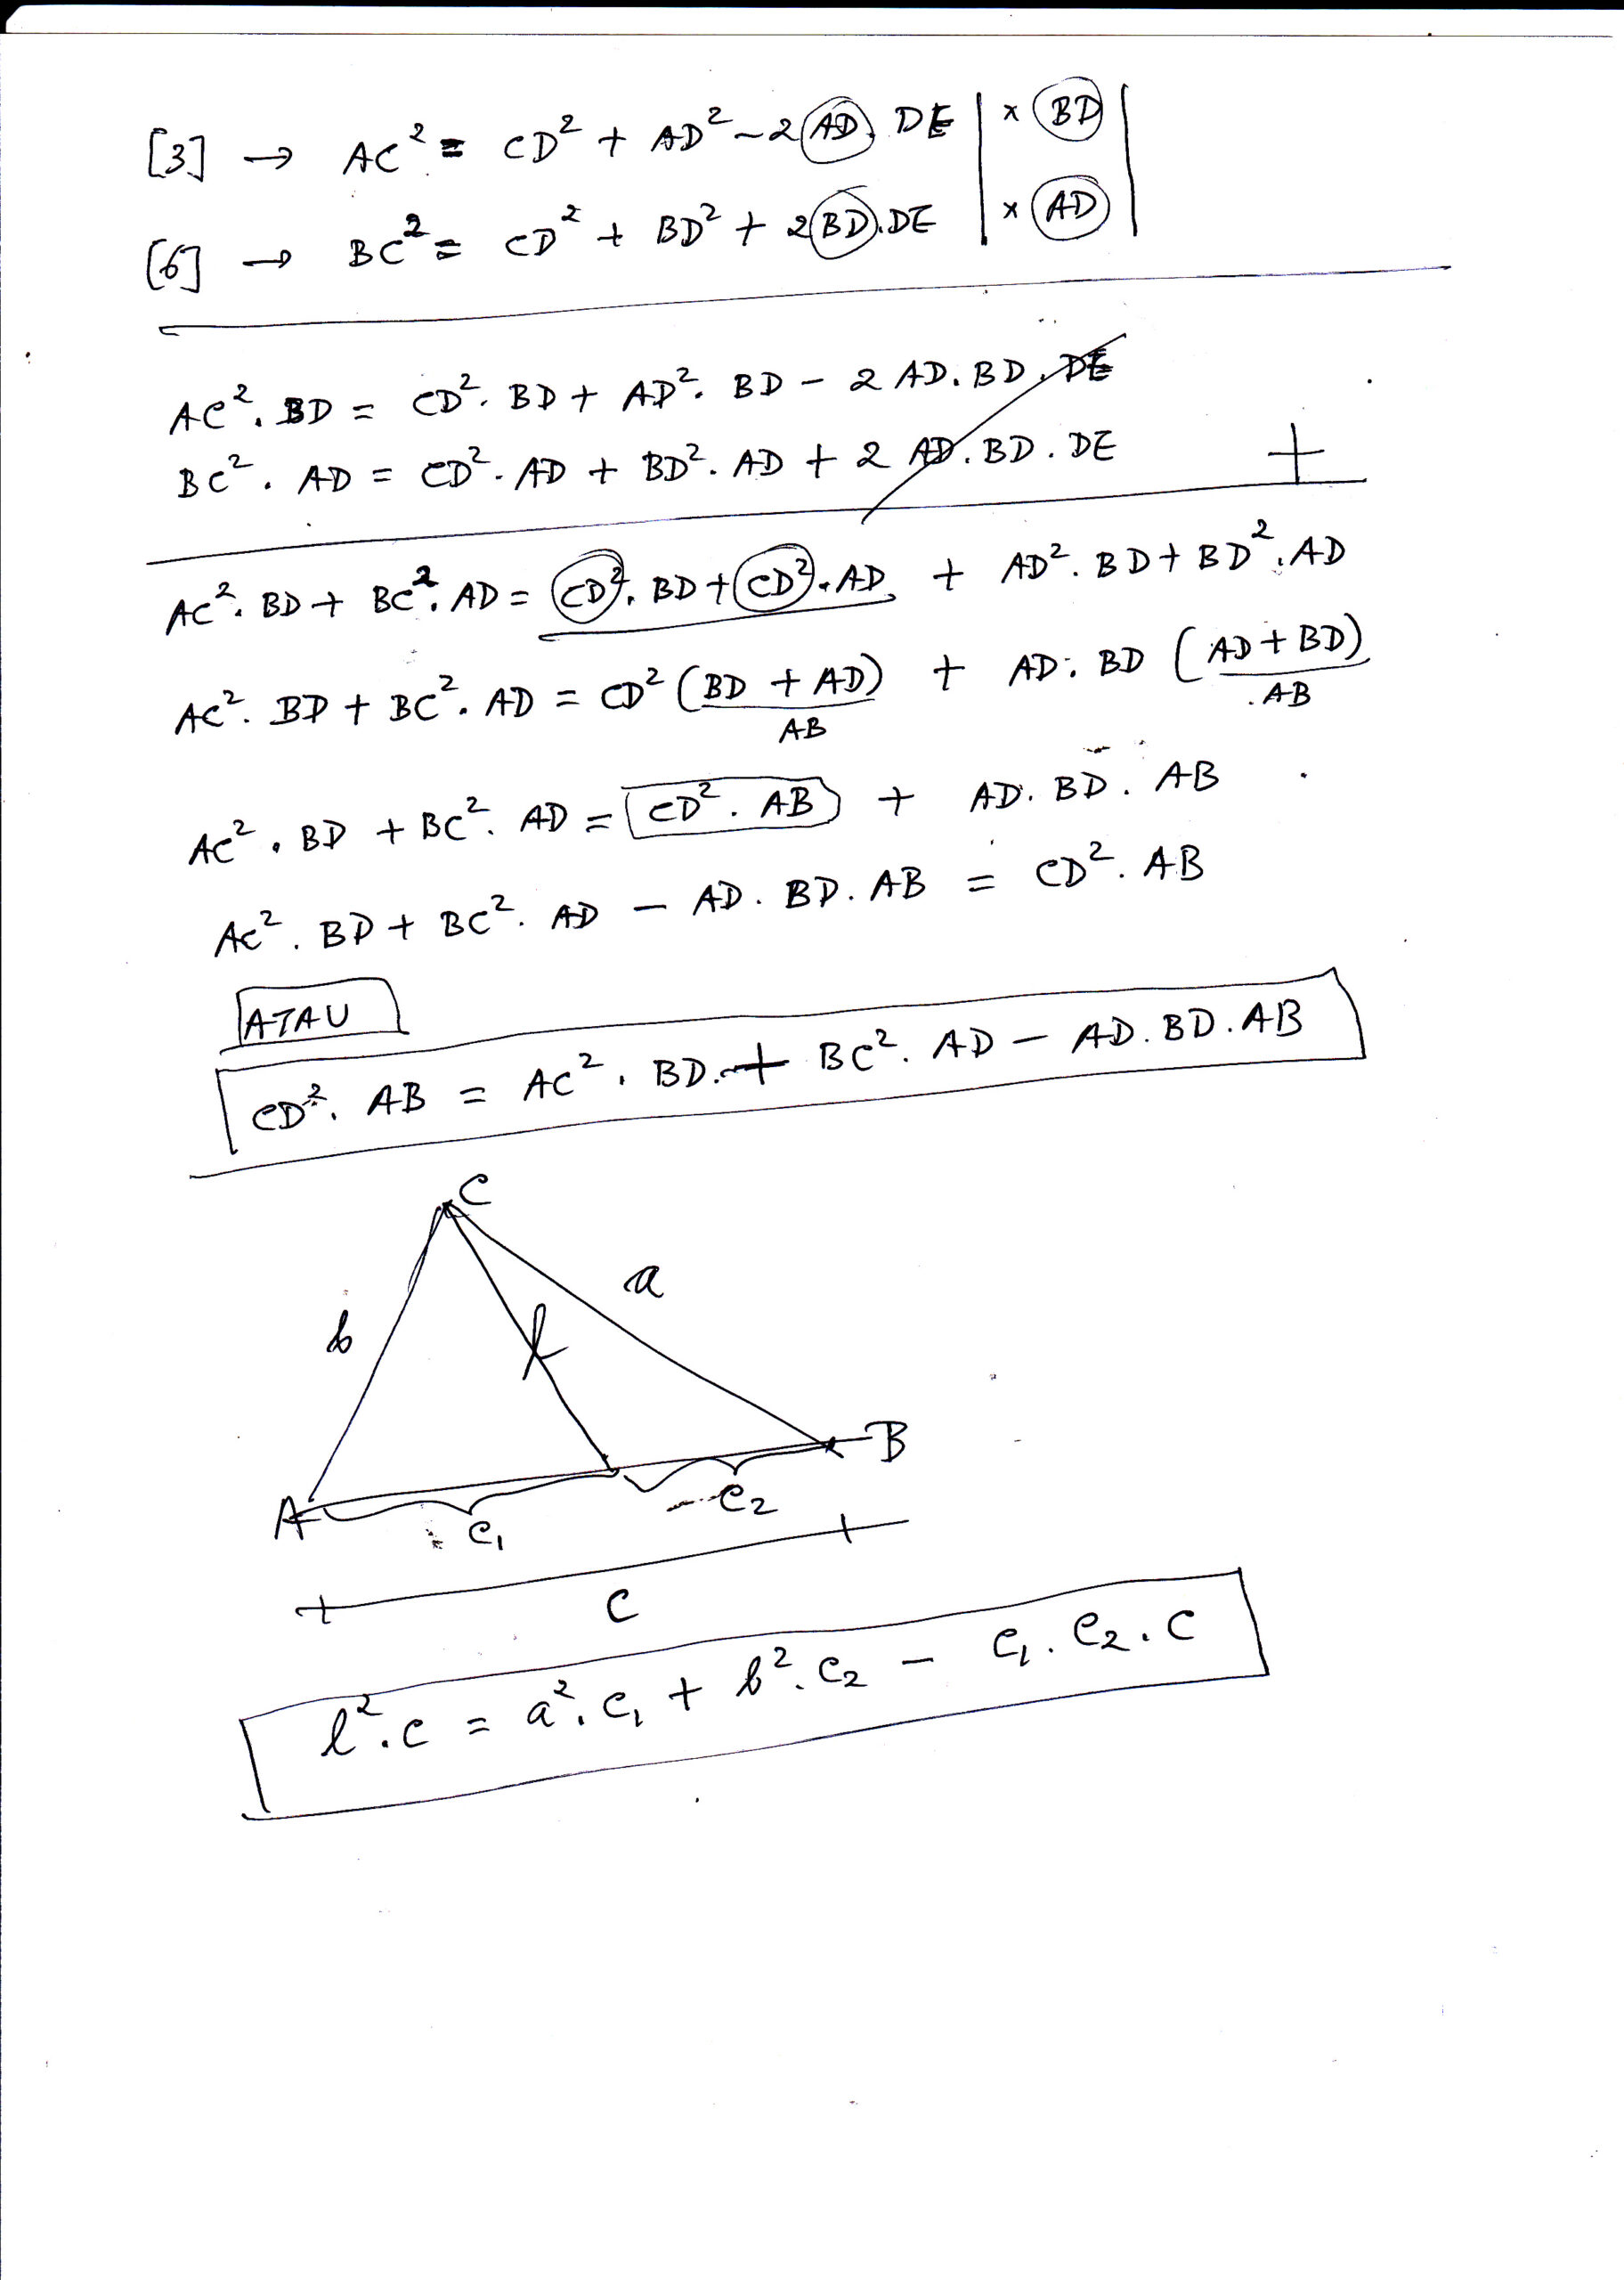 [3] → AC² = CD² + AD² - 2 AD. DE | × BD |
[6] → BC² = CD² + BD² + 2 BD. DE | × AD |
AC². BD = CD². BD + AD². BD - 2 AD. BD. DE
BC². AD = CD². AD + BD². AD + 2 AD. BD. DE +
AC². BD + BC². AD = CD². BD + CD². AD + AD². BD + BD². AD
AC². BD + BC². AD = CD² (BD + AD) + AD. BD (AD + BD)
AB .AB
AC². BD + BC². AD = CD². AB + AD. BD. AB
AC². BD + BC². AD - AD. BD. AB = CD². AB
ATAU
CD². AB = AC². BD. + BC². AD - AD. BD. AB
C
a
b
l
B
A
c₂
c₁
c
l². c = a². c₁ + b². c₂ - c₁. c₂. c